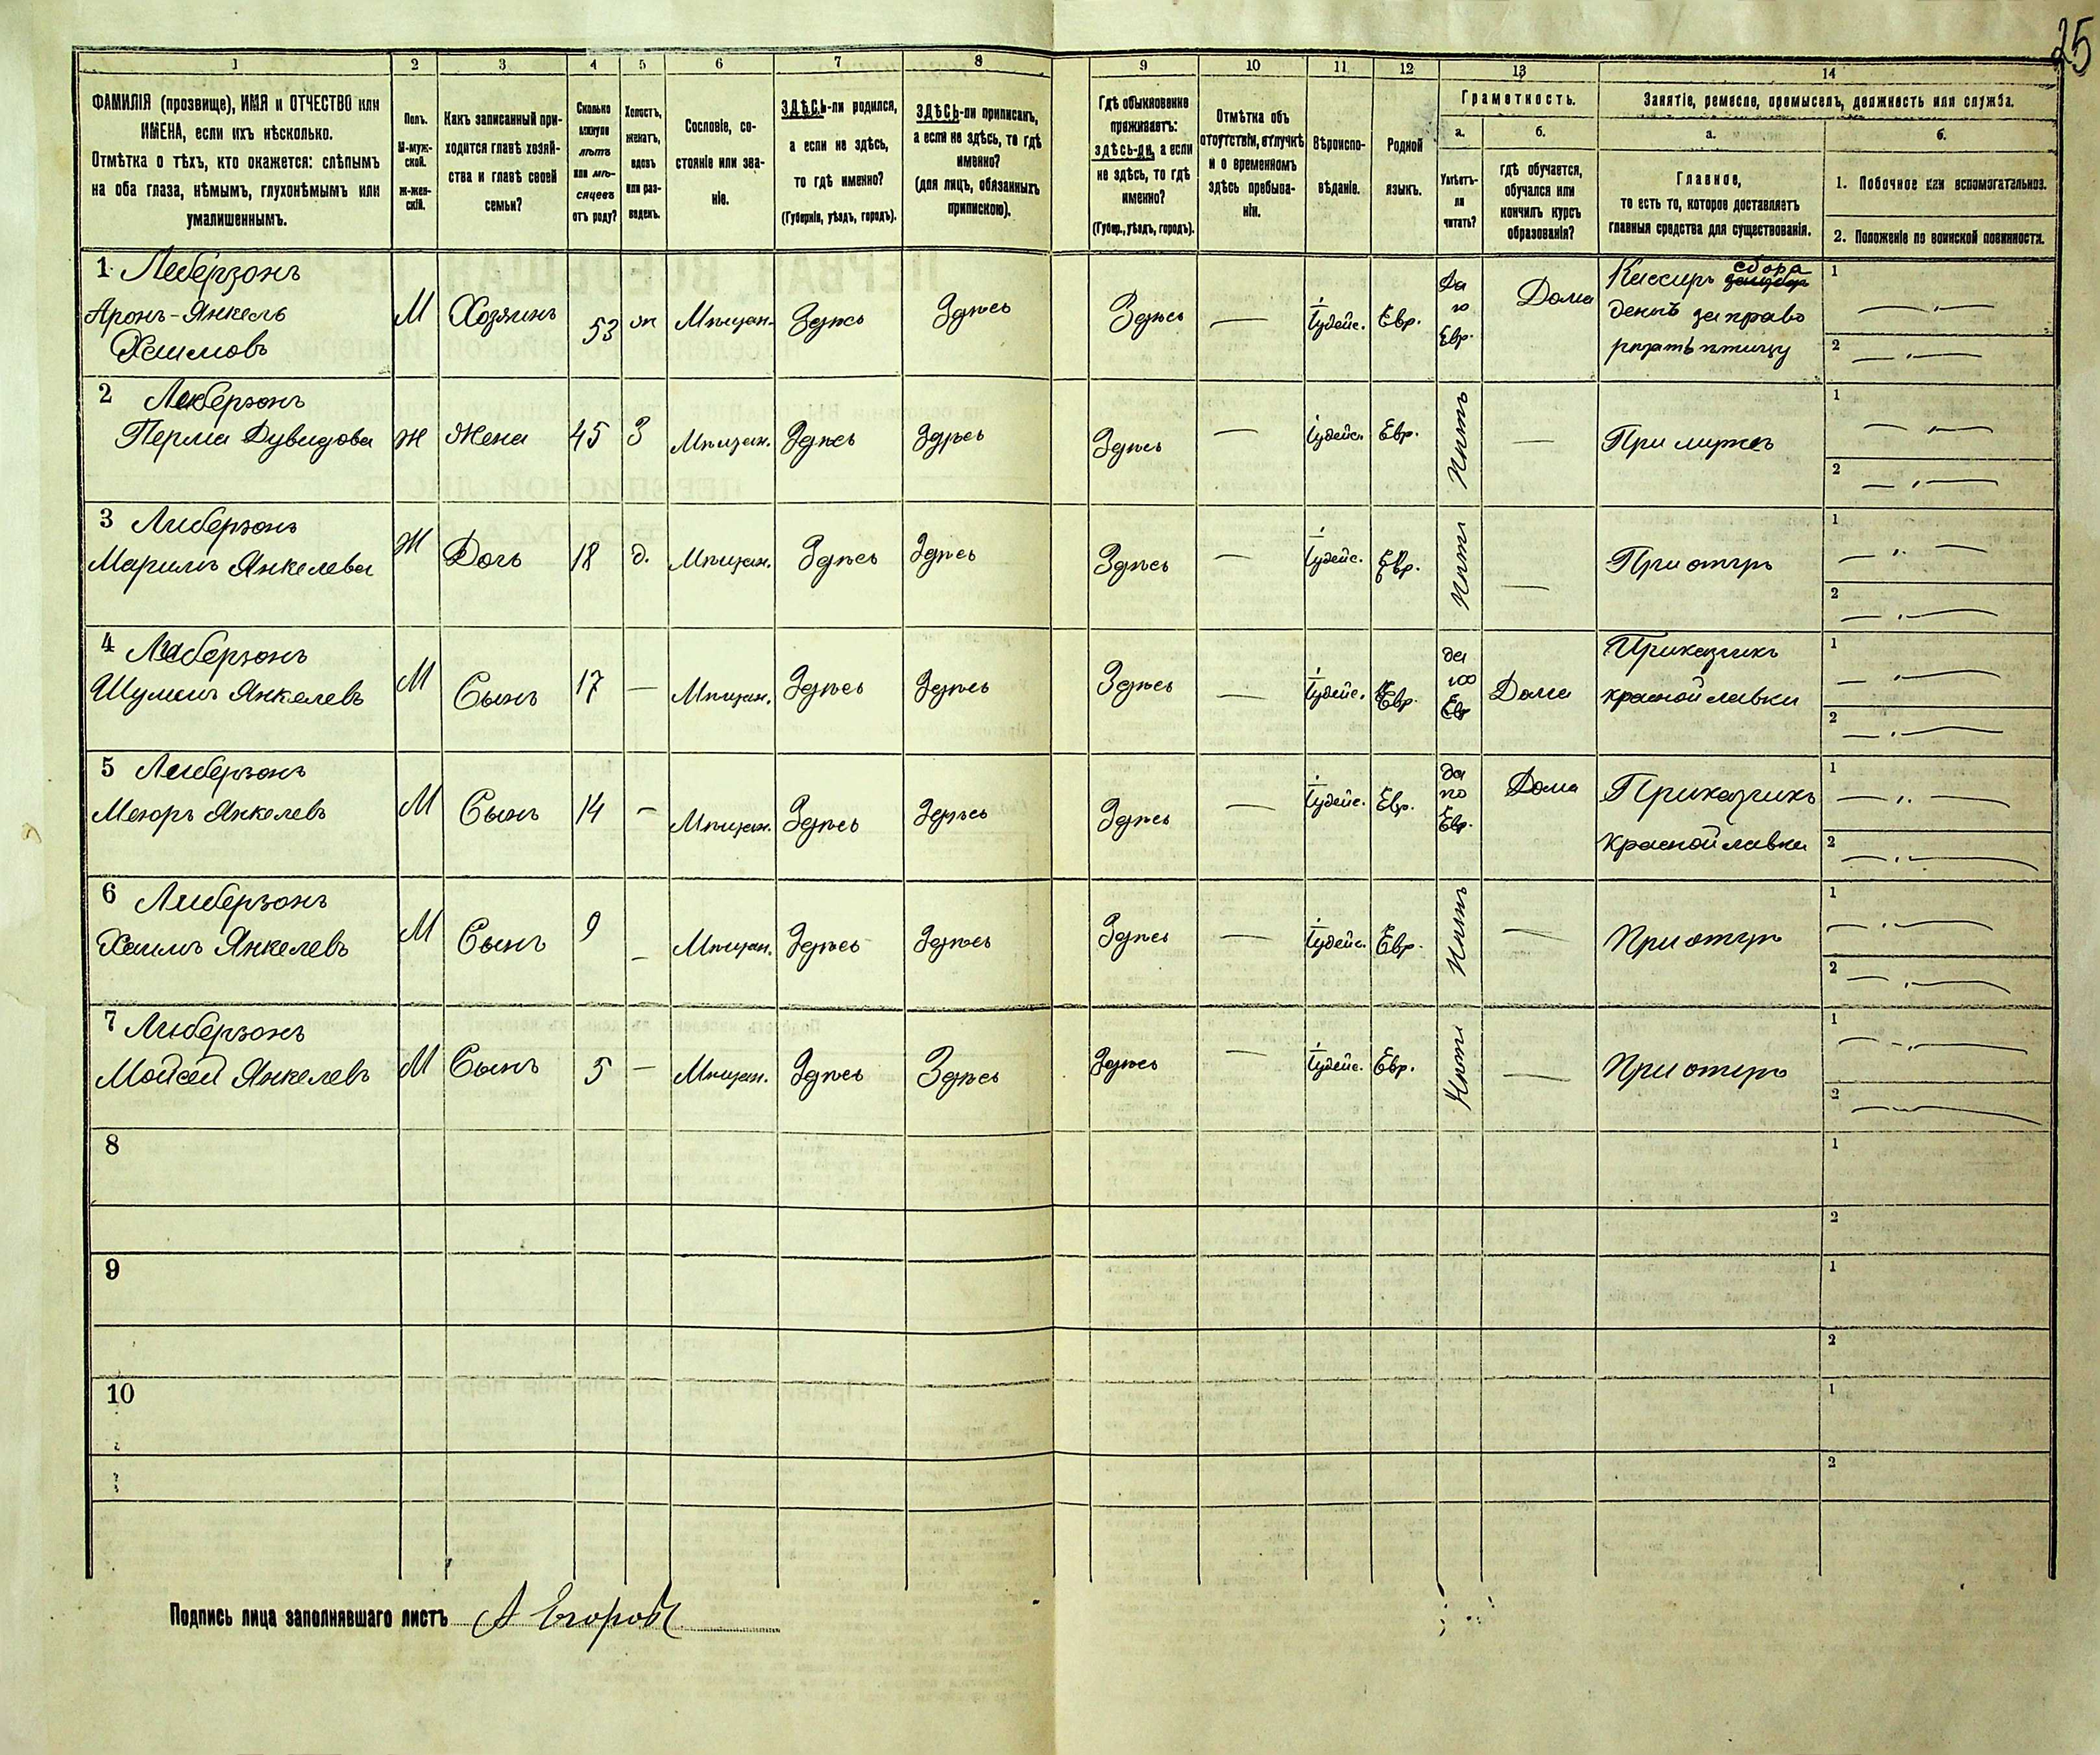 25
1 2 3 4 5 6 7 8 9 10 11 12 13 14
ФАМИЛІЯ (прозвище), ИМЯ и ОТЧЕСТВО или
ИМЕНА, если ихъ нѣсколько.
Отмѣтка о тѣхъ, кто окажется: слѣпымъ
на оба глаза, нѣмымъ, глухонѣмымъ или
умалишеннымъ.
Полъ.
М-муж-
ской.
Ж-жен-
скій.
Какъ записанный при-
ходится главѣ хозяй-
ства и главѣ своей
семьи?
Сколько
минуло
лѣтъ
или мѣ-
сяцевъ
отъ роду?
Холостъ,
женатъ,
вдовъ
или раз-
веденъ.
Сословіе, со-
стояніе или зва-
ніе.
ЗДѢСЬ-ли родился,
а если не здѣсь,
то гдѣ именно?
(Губернія, уѣздъ, городъ).
ЗДѢСЬ-ли приписанъ,
а если не здѣсь, то гдѣ
именно?
(для лицъ, обязанныхъ
припискою).
Гдѣ обыкновенно
проживаетъ:
здѣсь-ли, а если
не здѣсь, то гдѣ
именно?
(Губер., уѣздъ, городъ).
Отмѣтка объ
отсутствіи, отлучкѣ
и о временномъ
здѣсь пребыва-
ніи.
Вѣроиспо-
вѣданіе.
Родной
языкъ.
Грамотность.
а.
Умѣетъ-
ли
читать?
б.
гдѣ обучается,
обучался или
кончилъ курсъ
образованія?
Занятіе, ремесло, промыселъ, должность или служба.
а.
Главное,
то есть то, которое доставляетъ
главныя средства для существованія.
б.
1. Побочное или вспомогательное.
2. Положеніе по воинской повинности.
1 Либерзонъ
Аронъ-Янкель
Хаимовъ
М Хозяинъ 53 ж Мѣщан. Здѣсь Здѣсь Здѣсь — Іудейс. Евр. Да по Евр. Дома
Кассиръ сбора
денегъ за право
рѣзать птицу
1 —
2 —
2 Либерзонъ
Перла Дувидова
Ж Жена 45 З Мѣщан. Здѣсь Здѣсь Здѣсь — Іудейс. Евр. Нѣтъ — При мужѣ
1 —
2 —
3 Либерзонъ
Маримъ Янкелева
Ж Дочь 18 д. Мѣщан. Здѣсь Здѣсь Здѣсь — Іудейс. Евр. Нѣтъ — При отцѣ
1 —
2 —
4 Либерзонъ
Шумель Янкелевъ
М Сынъ 17 — Мѣщан. Здѣсь Здѣсь Здѣсь — Іудейс. Евр. да по Евр Дома
Приказчикъ
красной лавки
1 —
2 —
5 Либерзонъ
Меюръ Янкелевъ
М Сынъ 14 — Мѣщан. Здѣсь Здѣсь Здѣсь — Іудейс. Евр. да по Евр. Дома
Приказчикъ
красной лавки
1 —
2 —
6 Либерзонъ
Хаимъ Янкелевъ
М Сынъ 9 — Мѣщан. Здѣсь Здѣсь Здѣсь — Іудейс. Евр. Нѣтъ — При отцѣ
1 —
2 —
7 Либерзонъ
Мойсей Янкелевъ
М Сынъ 5 — Мѣщан. Здѣсь Здѣсь Здѣсь — Іудейс. Евр. Нѣтъ — При отцѣ
1 —
2 —
8
1
2
9
1
2
10
1
2
Подпись лица заполнявшаго листъ А Егоровъ